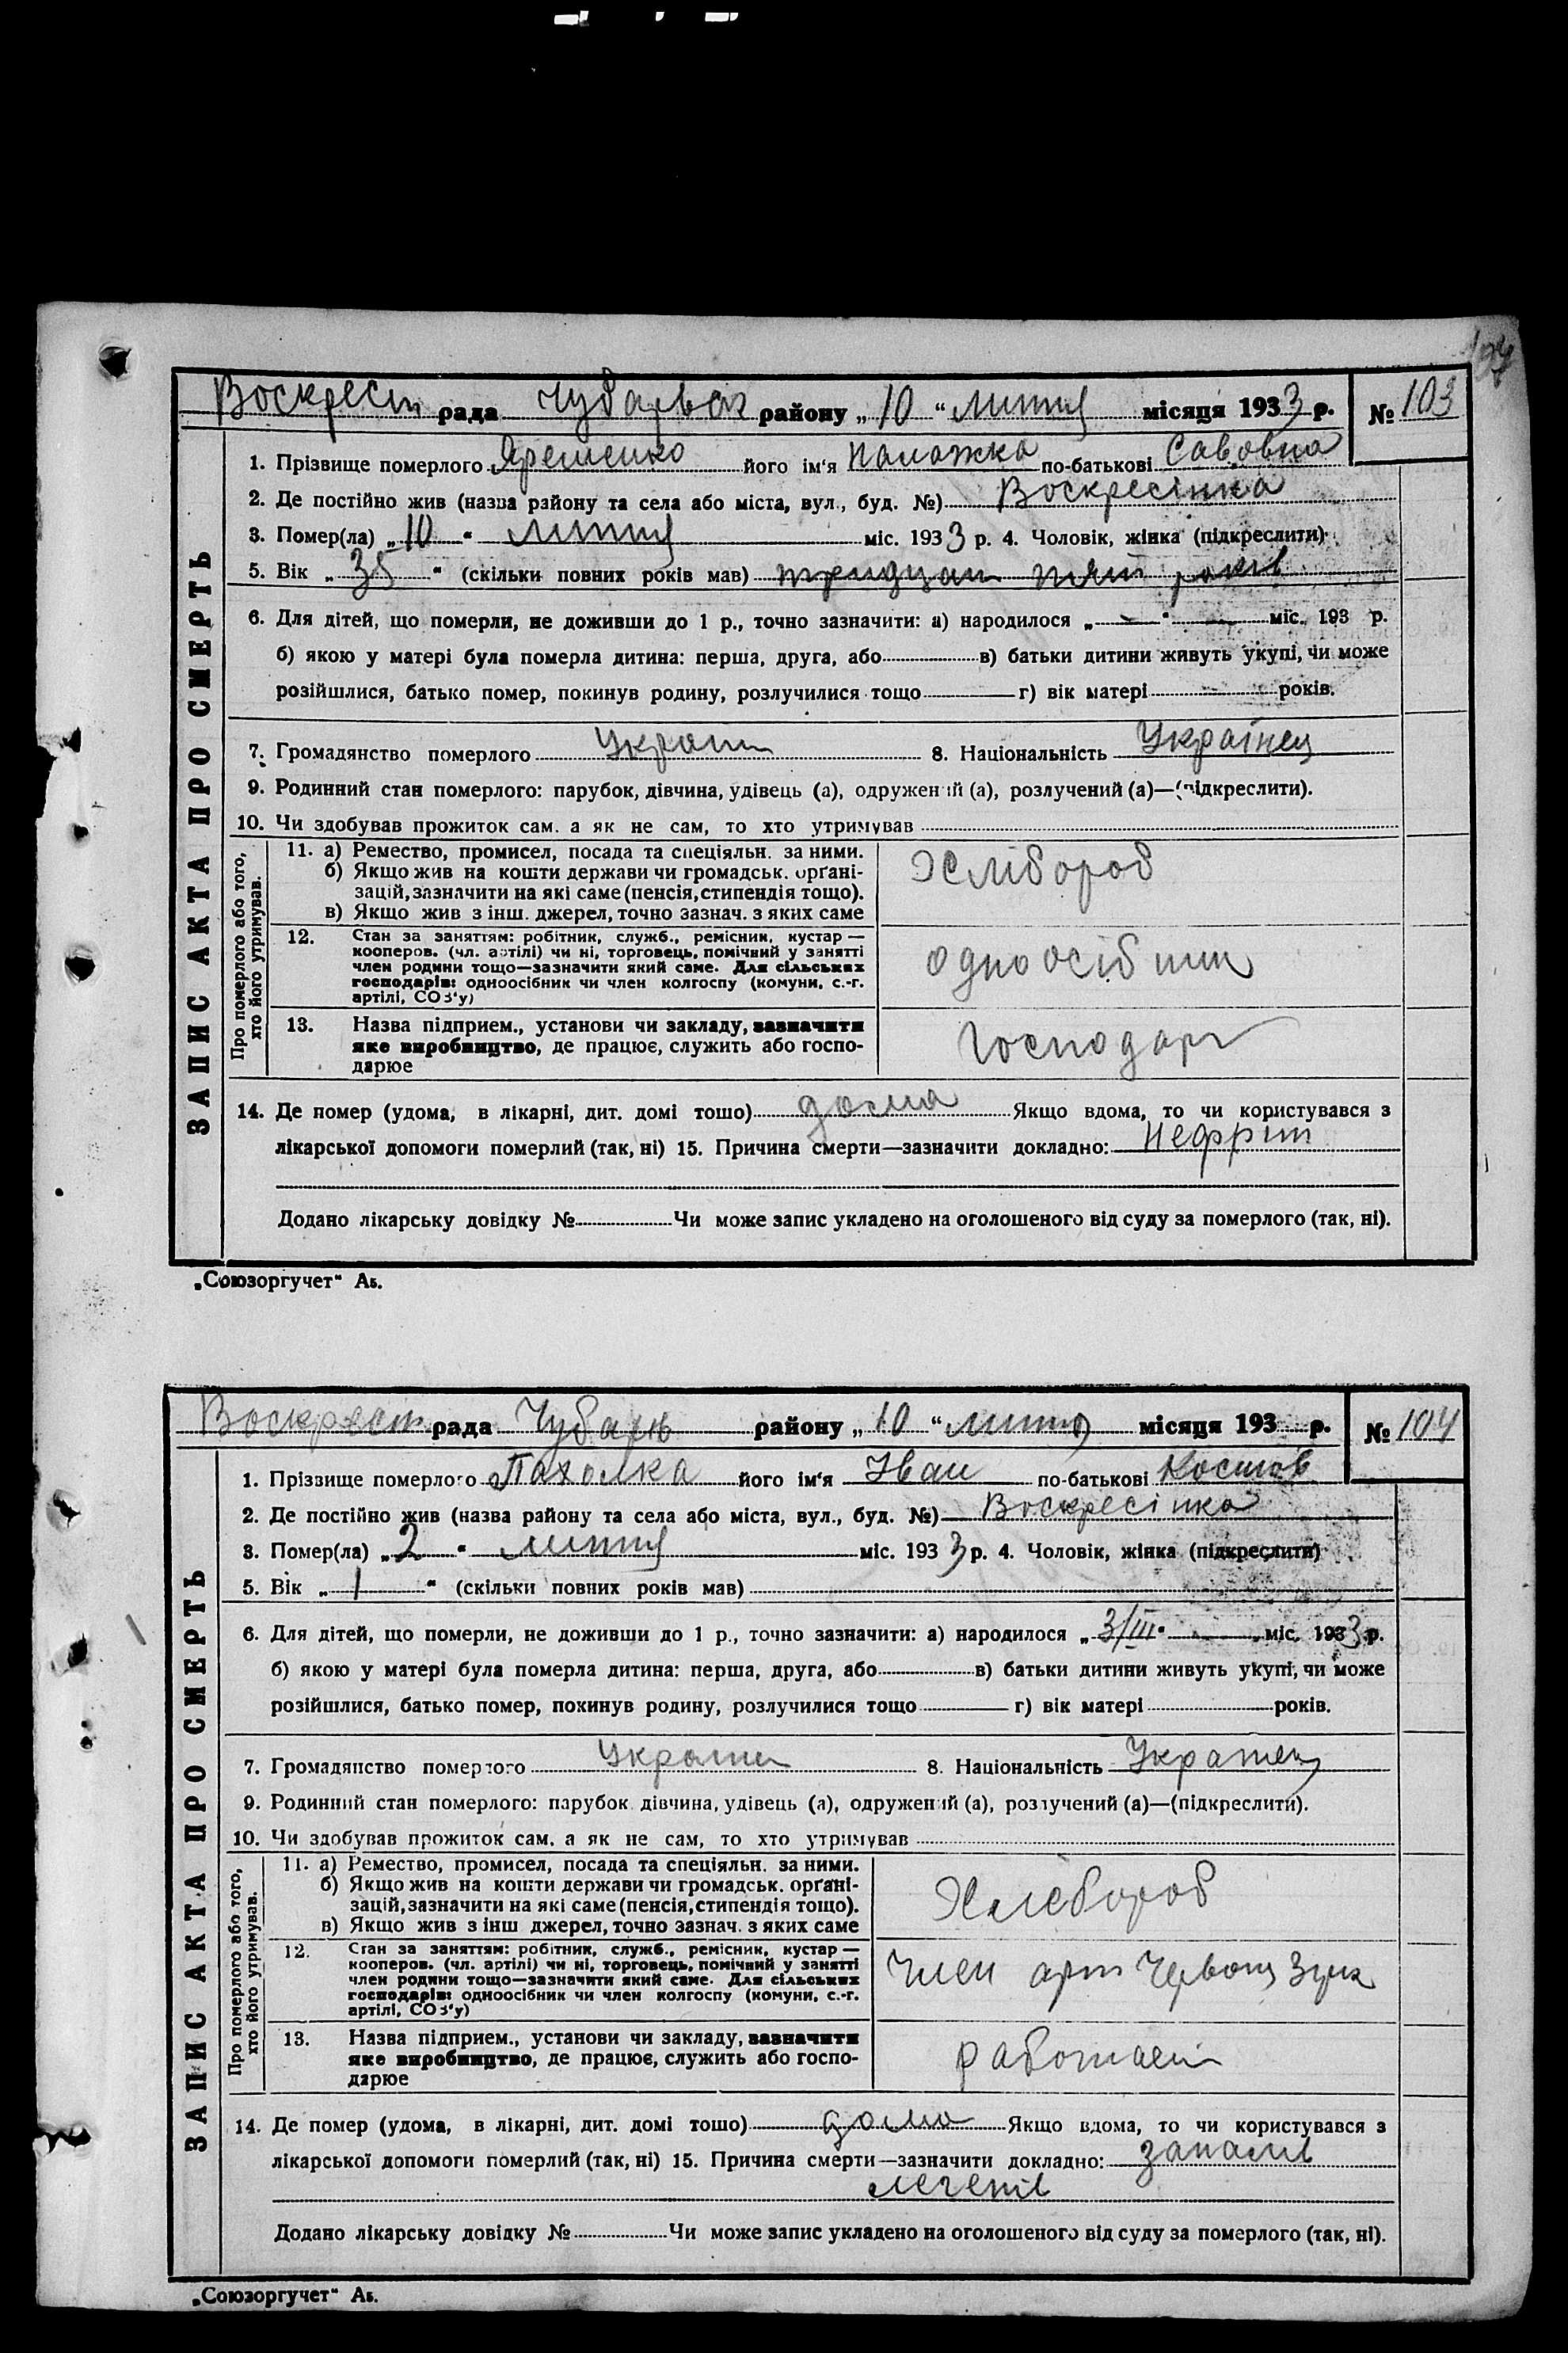 Воскресен рада Чубарівск району „ 10 “ липня місяця 1933 р. № 103
ЗАПИС АКТА ПРО СМЕРТЬ
1. Прізвище померлого Ярешенко його ім'я Палажка по-батькові Савовна
2. Де постійно жив (назва району та села або міста, вул., буд. №) Воскресінка
3. Помер(ла) „ 10 “ липня міс. 1933 р. 4. Чоловік, жінка (підкреслити)
5. Вік „ 35 “ (скільки повних років мав) тридцать пять років
6. Для дітей, що померли, не доживши до 1 р., точно зазначити: а) народилося „ — “ — міс. 193 р.
б) якою у матері була померла дитина: перша, друга, або в) батьки дитини живуть укупі, чи може
розійшлися, батько помер, покинув родину, розлучилися тощо г) вік матері років.
7. Громадянство померлого Україн 8. Національність Українец
9. Родинний стан померлого: парубок, дівчина, удівець (а), одружений (а), розлучений (а)—(підкреслити).
10. Чи здобував прожиток сам, а як не сам, то хто утримував
Про померлого або того, хто його утримував.
11. а) Ремество, промисел, посада та спеціяльн. за ними.
б) Якщо жив на кошти держави чи громадськ. органі-
зацій, зазначити на які саме (пенсія, стипендія тощо).
в) Якщо жив з інш. джерел, точно зазнач. з яких саме
Хлібороб
12. Стан за заняттям: робітник, служб., ремісник, кустар —
кооперов. (чл. артілі) чи ні, торговець, помічний у занятті
член родини тощо—зазначити який саме. Для сільських
господарів: одноосібник чи член колгоспу (комуни, с.-г.
артілі, СОЗ'у)
одноосібник
13. Назва підприєм., установи чи закладу, зазначити
яке виробництво, де працює, служить або госпо-
дарює
Господар
14. Де помер (удома, в лікарні, дит. домі тошо) дома Якщо вдома, то чи користувався з
лікарської допомоги померлий (так, ні) 15. Причина смерти—зазначити докладно: Нефріт
Додано лікарську довідку № Чи може запис укладено на оголошеного від суду за померлого (так, ні).
„Союзоргучет“ Аб.
Воскресен рада Чубарів району „ 10 “ липня місяця 193 р. № 104
ЗАПИС АКТА ПРО СМЕРТЬ
1. Прізвище померлого Пахолка його ім'я Іван по-батькові Костов
2. Де постійно жив (назва району та села або міста, вул., буд. №) Воскресінка
3. Помер(ла) „ 2 “ липня міс. 1933 р. 4. Чоловік, жінка (підкреслити)
5. Вік „ 1 “ (скільки повних років мав)
6. Для дітей, що померли, не доживши до 1 р., точно зазначити: а) народилося „ 3/III “ міс. 1933 р.
б) якою у матері була померла дитина: перша, друга, або в) батьки дитини живуть укупі, чи може
розійшлися, батько помер, похинув родину, розлучилися тощо г) вік матері років.
7. Громадянство померлого Україн 8. Національність Українец
9. Родинний стан померлого: парубок, дівчина, удівець (а), одружений (а), розлучений (а)—(підкреслити).
10. Чи здобував прожиток сам, а як не сам, то хто утримував
Про померлого або того, хто його утримував.
11. а) Ремество, промисел, посада та спеціяльн. за ними.
б) Якщо жив на кошти держави чи громадськ. органі-
зацій, зазначити на які саме (пенсія, стипендія тощо).
в) Якщо жив з інш джерел, точно зазнач. з яких саме
Хлебороб
12. Стан за заняттям: робітник, служб., ремісник, кустар —
кооперов. (чл. артілі) чи ні, торговець, помічний у занятті
член родини тощо—зазначити який саме. Для сільських
господарів: одноосібник чи член колгоспу (комуни, с.-г.
артілі, СОЗ'у)
Член арт Червона Зірка
13. Назва підприєм., установи чи закладу, зазначити
яке виробництво, де працює, служить або госпо-
дарює
работает
14. Де помер (удома, в лікарні, дит. домі тошо) дома Якщо вдома, то чи користувався з
лікарської допомоги померлий (так, ні) 15. Причина смерти—зазначити докладно: запалів
легенів
Додано лікарську довідку № Чи може запис укладено на оголошеного від суду за померлого (так, ні).
„Союзоргучет“ Аб.